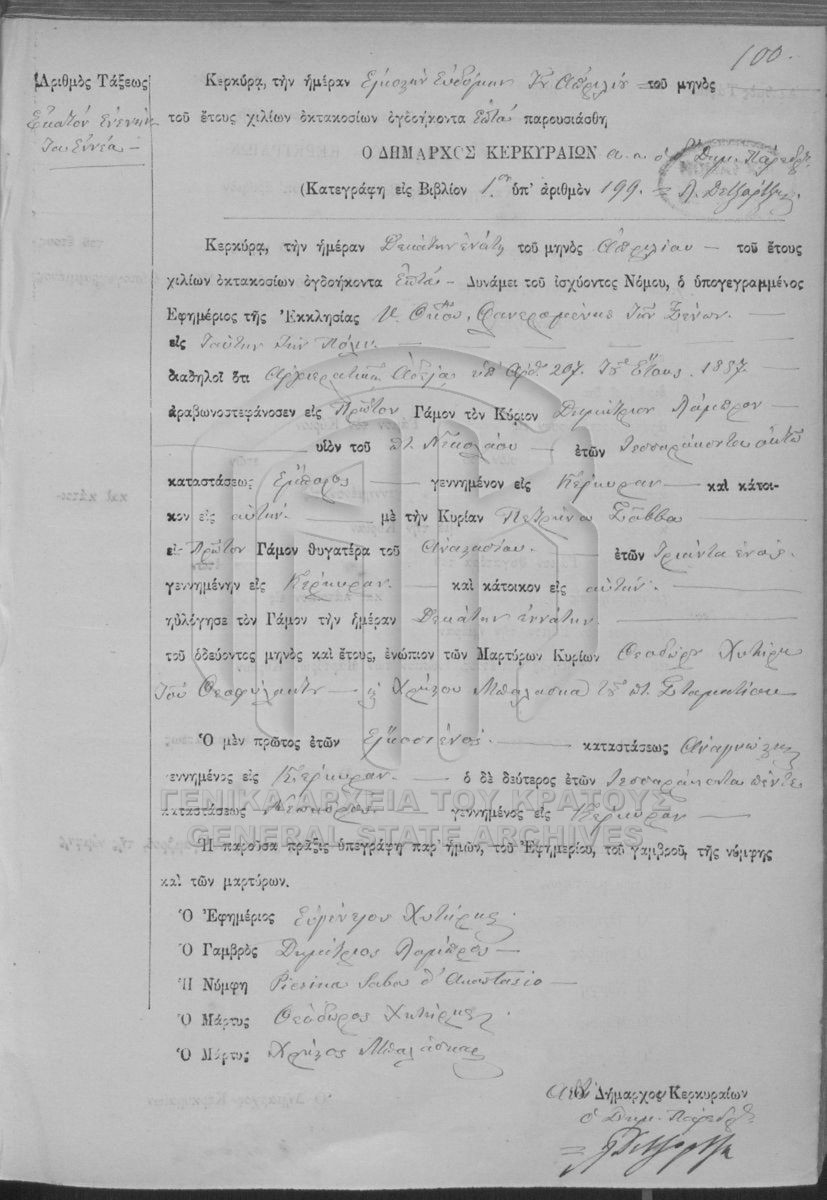 100.
Ἀριθμὸς Τάξεως
Ἑκατόν ἐνενήντα Ἐννέα —
Κερκύρᾳ, τὴν ἡμέραν Εἰκοστὴν Ἑβδόμην Ἀπριλίου τοῦ μηνὸς
τοῦ ἔτους χιλίων ὀκτακοσίων ὀγδοήκοντα Ἑπτὰ παρουσιάσθη
Ο ΔΗΜΑΡΧΟΣ ΚΕΡΚΥΡΑΙΩΝ α.α. ὁ Δημ. Πάρεδρ.
(Κατεγράφη εἰς Βιβλίον 1ον ὑπ' ἀριθμὸν 199.
Κερκύρᾳ, τὴν ἡμέραν Δεκάτην ἐνάτην τοῦ μηνὸς Ἀπριλίου — τοῦ ἔτους
χιλίων ὀκτακοσίων ὀγδοήκοντα Ἑπτὰ — Δυνάμει τοῦ ἰσχύοντος Νόμου, ὁ ὑπογεγραμμένος
Ἐφημέριος τῆς Ἐκκλησίας Φανερωμένης τῶν Ξένων. —
εἰς ταύτην τὴν Πόλιν —
διαδηλοῖ ὅτι Ἀρχιερατικῆς Ἀδείας ὑπ' Ἀρθ. 207. τοῦ Ἔτους 1887. —
ἀραβωνοστεφάνοσεν εἰς Πρῶτον Γάμον τὸν Κύριον Δημήτριον Λάμπρον —
υἱὸν τοῦ πτ. Νικολάου — ἐτῶν Τεσσαράκοντα ὀκτὼ
καταστάσεως Ἔμπορος — γεννημένον εἰς Κέρκυραν — καὶ κάτοι-
κον εἰς αὐτήν. — μὲ τὴν Κυρίαν Πετρίνα Σάββα
εἰς Πρῶτον Γάμον θυγατέρα τοῦ Ἀναστασίου. — ἐτῶν Τριάντα ἑνός.
γεννημένην εἰς Κέρκυραν. — καὶ κάτοικον εἰς αὐτήν. —
ηὐλόγησε τὸν Γάμον τὴν ἡμέραν Δεκάτην ἐννάτην. —
τοῦ ὁδεύοντος μηνὸς καὶ ἔτους, ἐνώπιον τῶν Μαρτύρων Κυρίων Θεοδώρου Χυτήρη
τοῦ Θεοφυλάκτου — κ Χρήστου Μπαλάσκα τοῦ πτ. Σταματίου
Ὁ μὲν πρῶτος ἐτῶν Εἴκοσι ἑνός. — καταστάσεως Ἀναγνώστης
γεννημένος εἰς Κέρκυραν. — ὁ δὲ δεύτερος ἐτῶν Τεσσαράκοντα πέντε
καταστάσεως Νεωκόρος — γεννημένος εἰς Κέρκυραν —
ΓΕΝΙΚΑ ΑΡΧΕΙΑ ΤΟΥ ΚΡΑΤΟΥΣ
GENERAL STATE ARCHIVES
Ἡ παροῦσα πρᾶξις ὑπεγράφη παρ' ἡμῶν, τοῦ Ἐφημερίου, τοῦ γαμβροῦ, τῆς νύμφης
καὶ τῶν μαρτύρων.
Ὁ Ἐφημέριος Χυτήρης.
Ὁ Γαμβρὸς Δημήτριος Λάμπρος —
Ἡ Νύμφη Pierina Sabas d' Anastasio —
Ὁ Μάρτυς Θεόδωρος Χητήρης
Ὁ Μάρτυς Χρῆστος Μπαλάσκας
Ὁ Δήμαρχος Κερκυραίων
ὁ Δημ. Πάρεδρ.